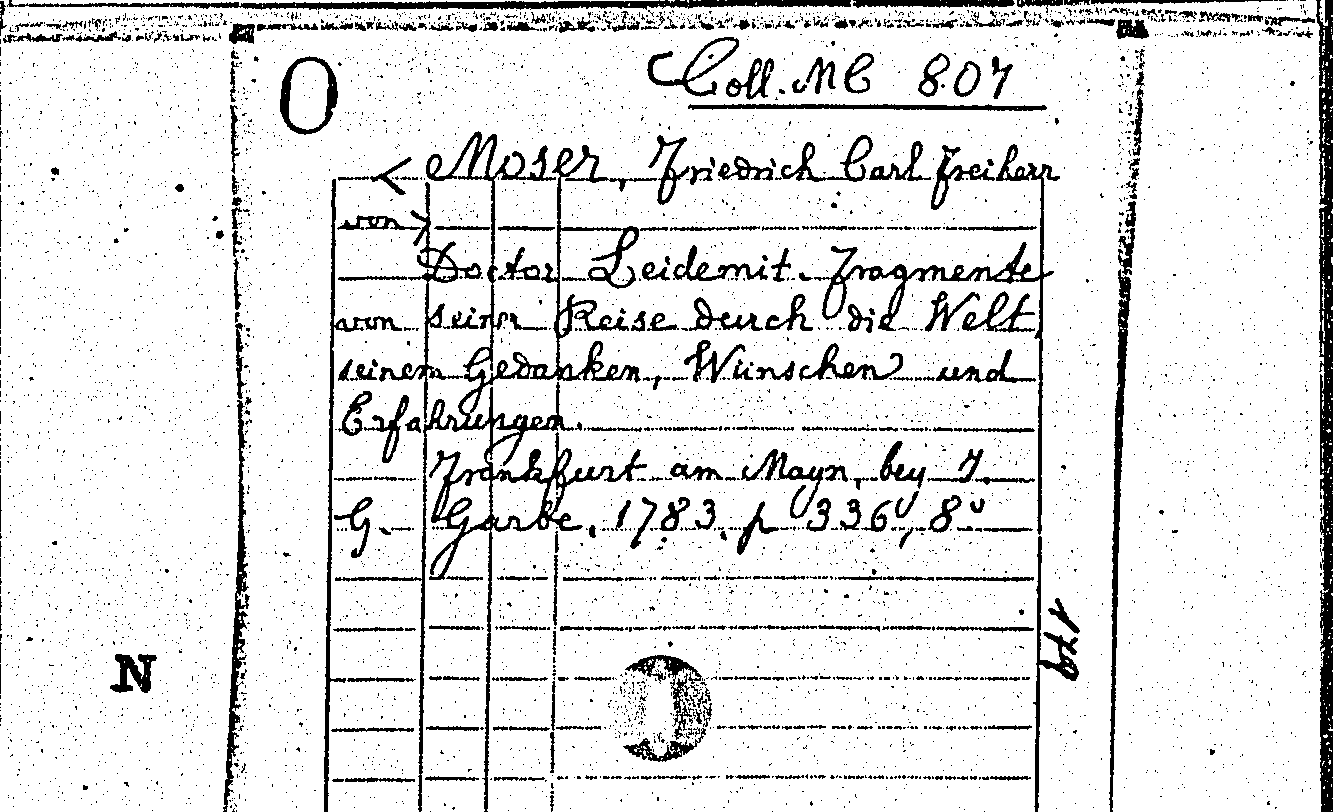 O
Coll. MC 807
< Moser, Friedrich Carl Freiherr
von>
Doctor Leidemit. Fragmente
von seiner Reise durch die Welt,
seinem Gedanken, Wünschen und
Erfahrungen.
Frankfurt am Mayn, bey J.
G. Garbe, 1783. p 336, 8º
N